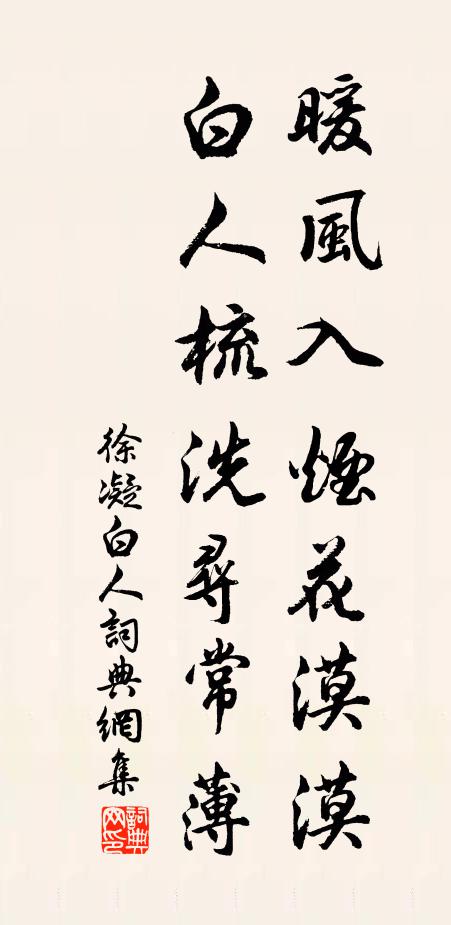 暖風入煙花漠漠
白人梳洗尋常薄
徐凝白人詞典網集
詞典網印